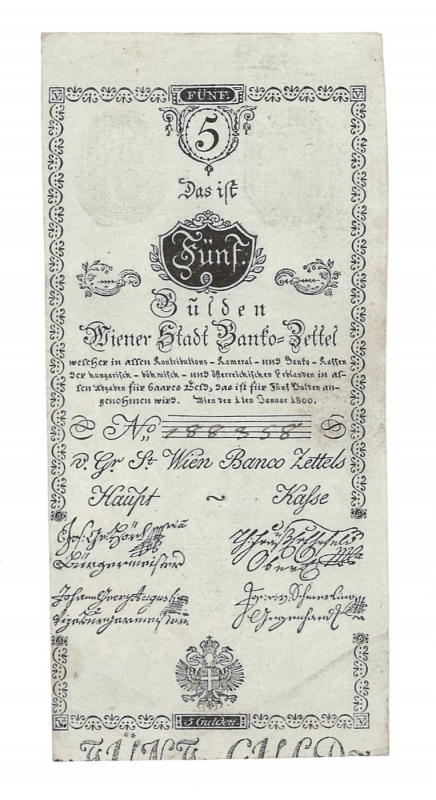 FÜNF.
V. V.
5
Das ist
Fünf.
Gulden
Wiener Stadt Banko-Zettel
welcher in allen Kontributions-Kameral-und Banko-Kassen
der hungarisch-böhmisch-und österreichischen Erblanden in al-
len Abgaben für baares Geld, das ist für Fünf Gulden an-
genohmen wird. Wien den 1ten Januar 1800.
No 188358
v. Gr St. Wien Banco Zettels
Haupt ~ Kasse
Bürgermeister
Johann Georg Augusti
Vizebürgermeister Gegenhand
V. 5 Gulden. V.
FÜNF GULD